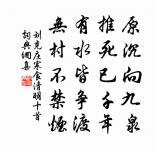 原沉向九泉
推死已千年
有水皆爭渡
無村不禁煙
劉克莊寒食清明十首
詞典網集